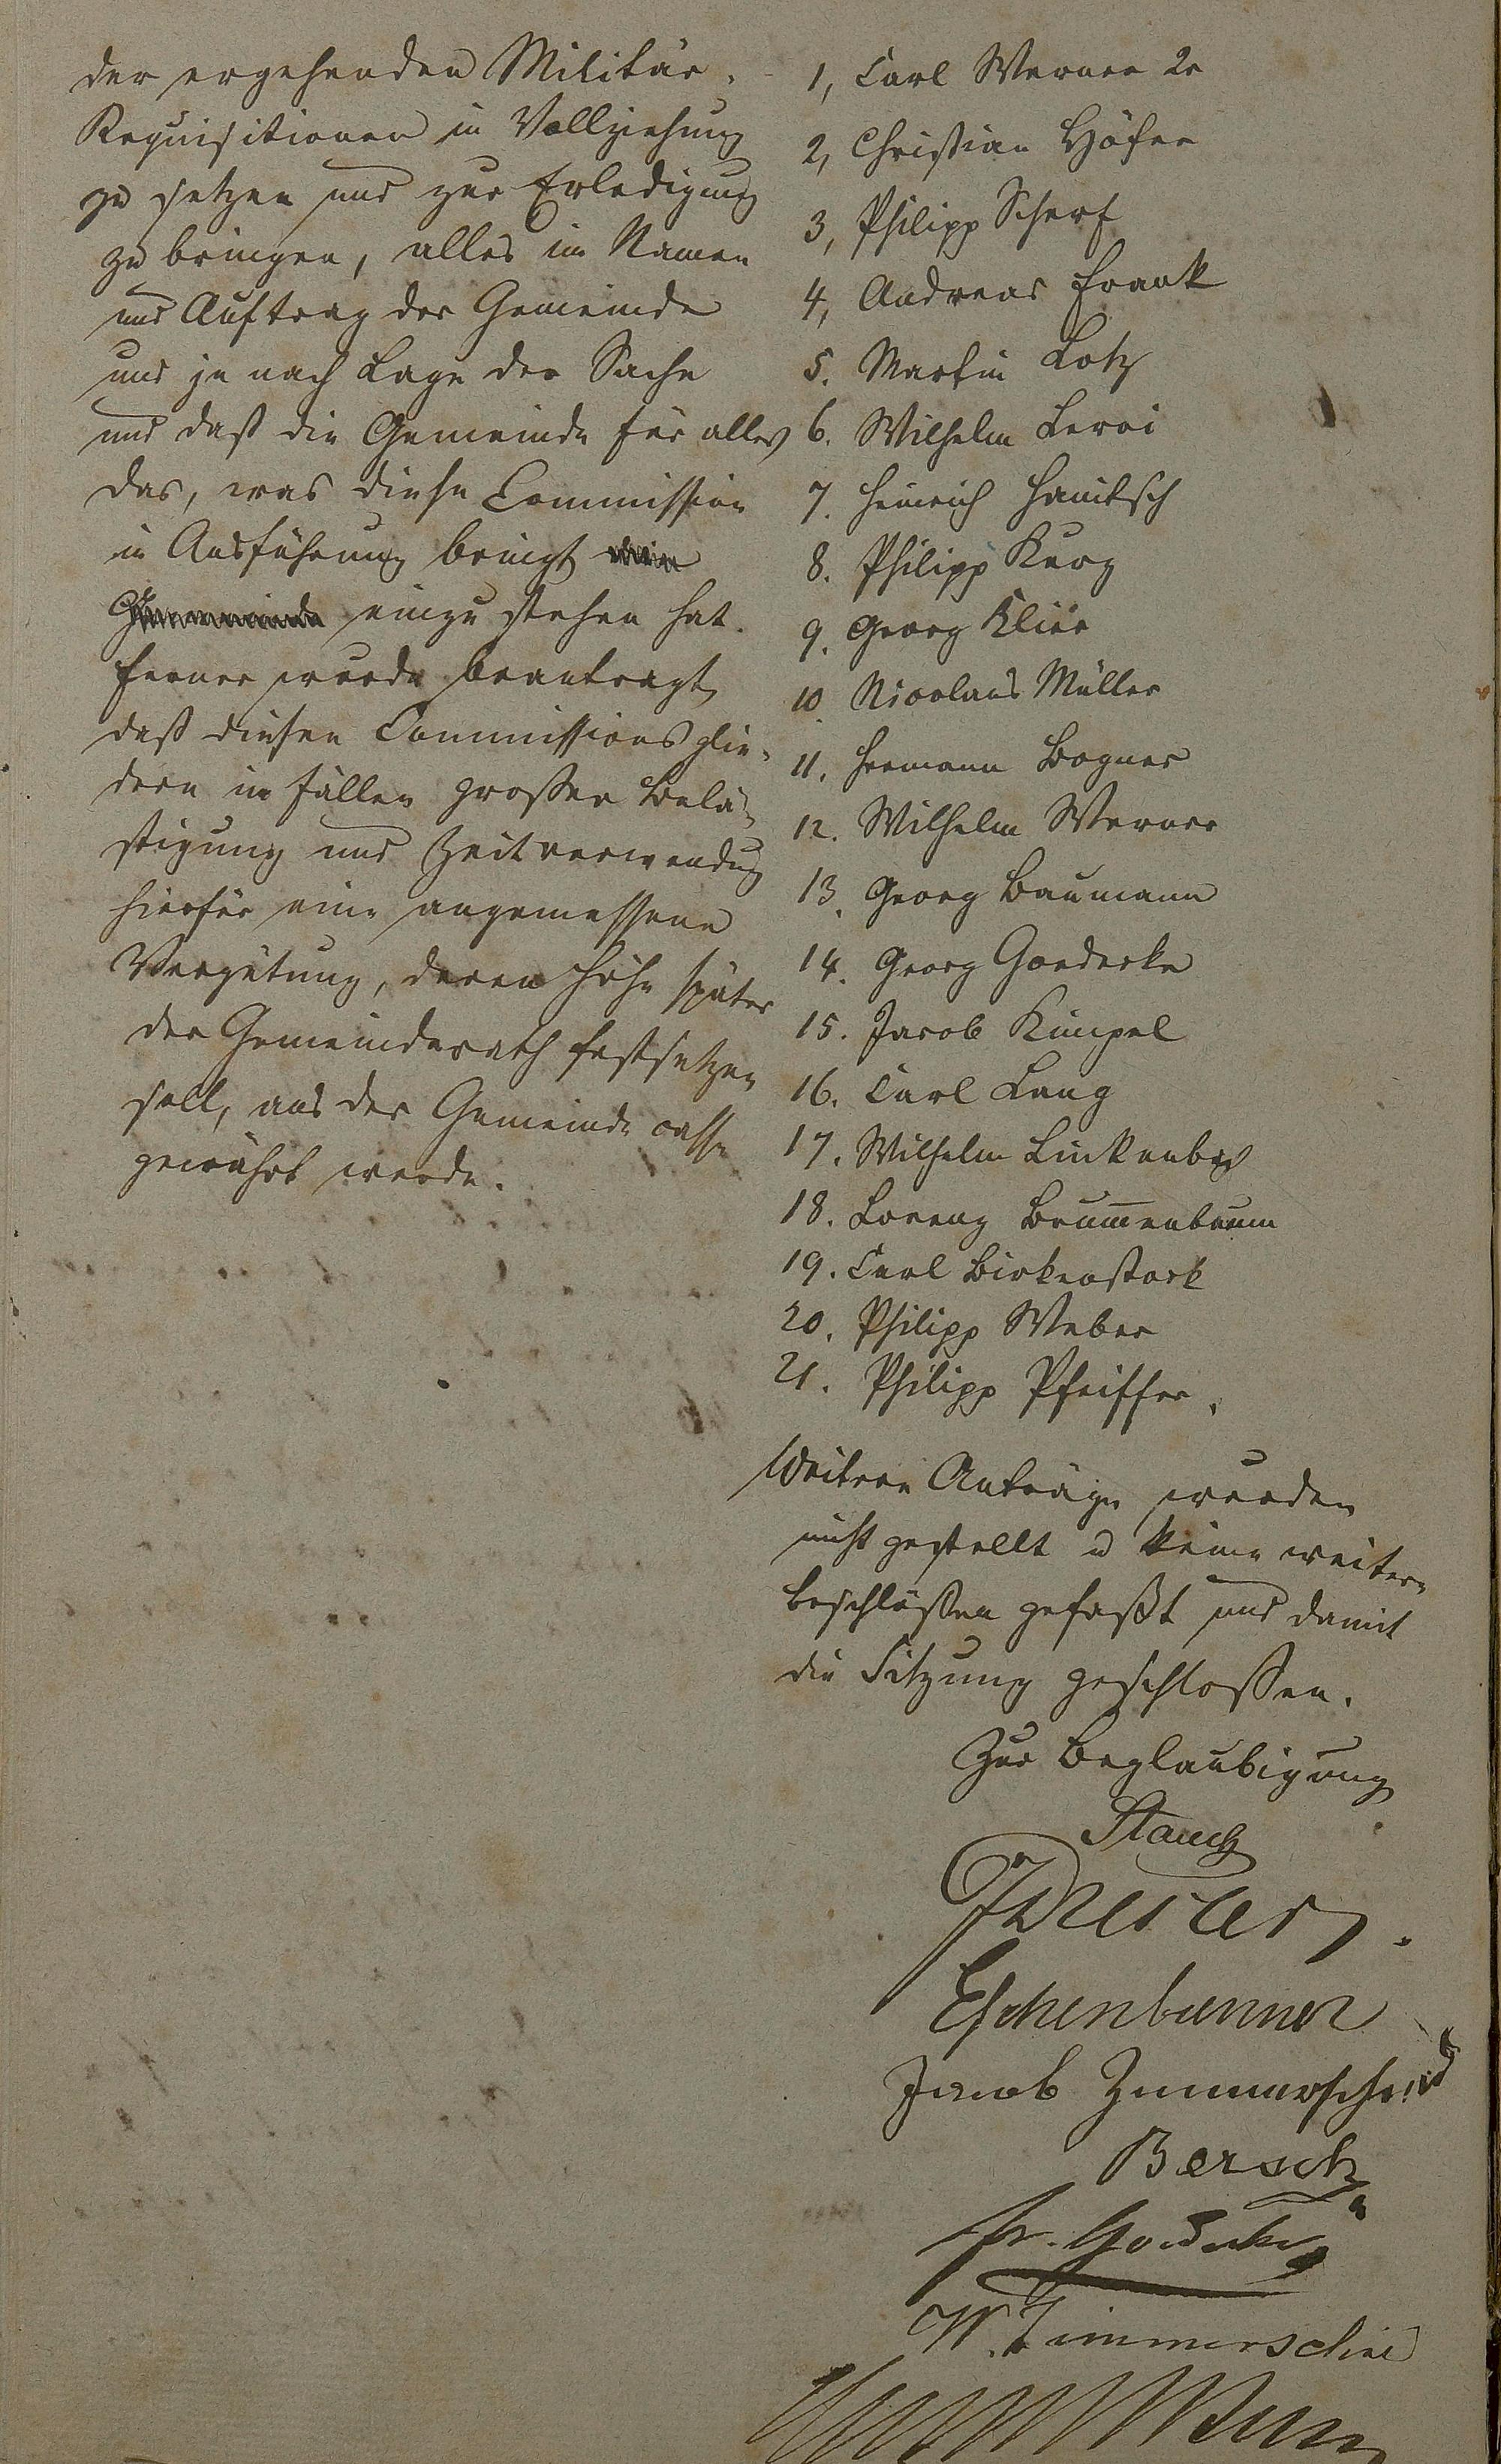 der ergehenden Militär-
Requisitionen in Vollziehung
zu setzen und zur Erledigung
zu bringen, alles im Namen
und Auftrag der Gemeinde
und je nach Lage der Sache
und daß die Gemeinde für alles
das, was diese Commission
in Ausführung bringt die
Gemeinde einzustehen hat.
Ferner wurde beantragt,
daß diesen Commissionsglie-
dern in Fällen großer Belä-
stigung und Zeitverwendung
hierfür eine angemessene
Vergütung, deren Höhe später
der Gemeinderath festsetzen
soll, aus der Gemeindecasse
gewährt werde.
1, Carl Werner 2r
2, Christian Höfer
3, Philipp Scherf
4, Andreas Frank
5. Martin Lotz
6. Wilhelm Leroi
7. Heinrich Hanitsch
8. Philipp Kurz
9. Georg Klier
10. Nicolaus Müller
11. Hermann Bogner
12. Wilhelm Werner
13. Georg Baumann
14. Georg Goedecke
15. Jacob Kimpel
16. Carl Lang
17. Wilhelm Linkenbach
18. Lorenz Brummenbaum
19. Carl Birkenstock
20. Philipp Weber
21. Philipp Pfeiffer.
Weitere Anträge wurden
nicht gestellt u keine weitere
Beschlüßen gefaßt und damit
die Sitzung geschloßen.
Zur Beglaubigung
Stauch
Eschenbrenner
Jacob Zimmerschied
Bersch
Fr. Goedecke
W. Zimmerschied